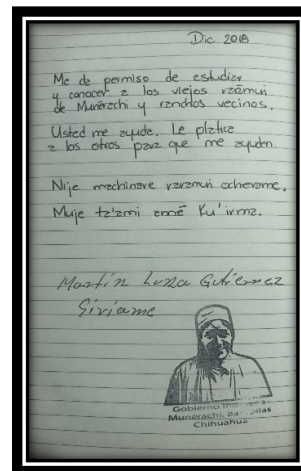 Dic. 2018
Me da permiso de estudiar
y conocer a los viejos rarámuri
de Munerachi y ranchos vecinos.
Usted me ayuda. Le platica
a los otros para que me ayuden.
Nije machinare raramuri ocherame.
Muje ta'ami amé Ku'irma.
Martín Luna Gutierrez
Siriame
Gobierno
Munerachi,
Chihuahua